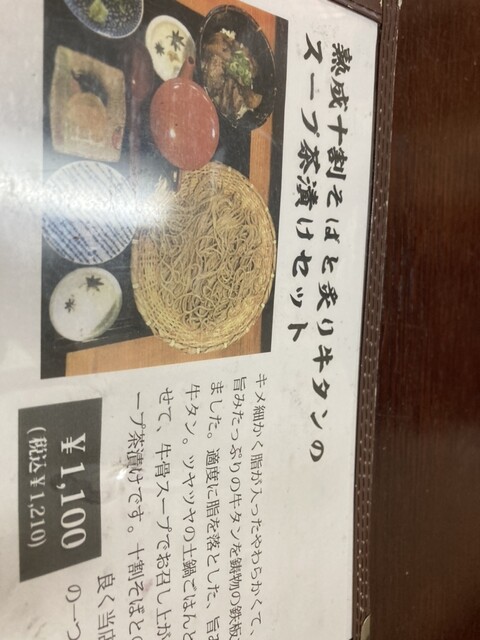 熟成十割そばと炙り牛タンの
スープ茶漬けセット
キメ細かく脂が入ったやわらかくて、
旨みたっぷりの牛タンを鋳物の鉄板
ました。適度に脂を落とした、旨み
牛タン。ツヤツヤの土鍋ごはんと
せて、牛骨スープでお召し上が
ープ茶漬けです。十割そばとの
良く当店
の一つ
¥1,100
(税込¥1,210)